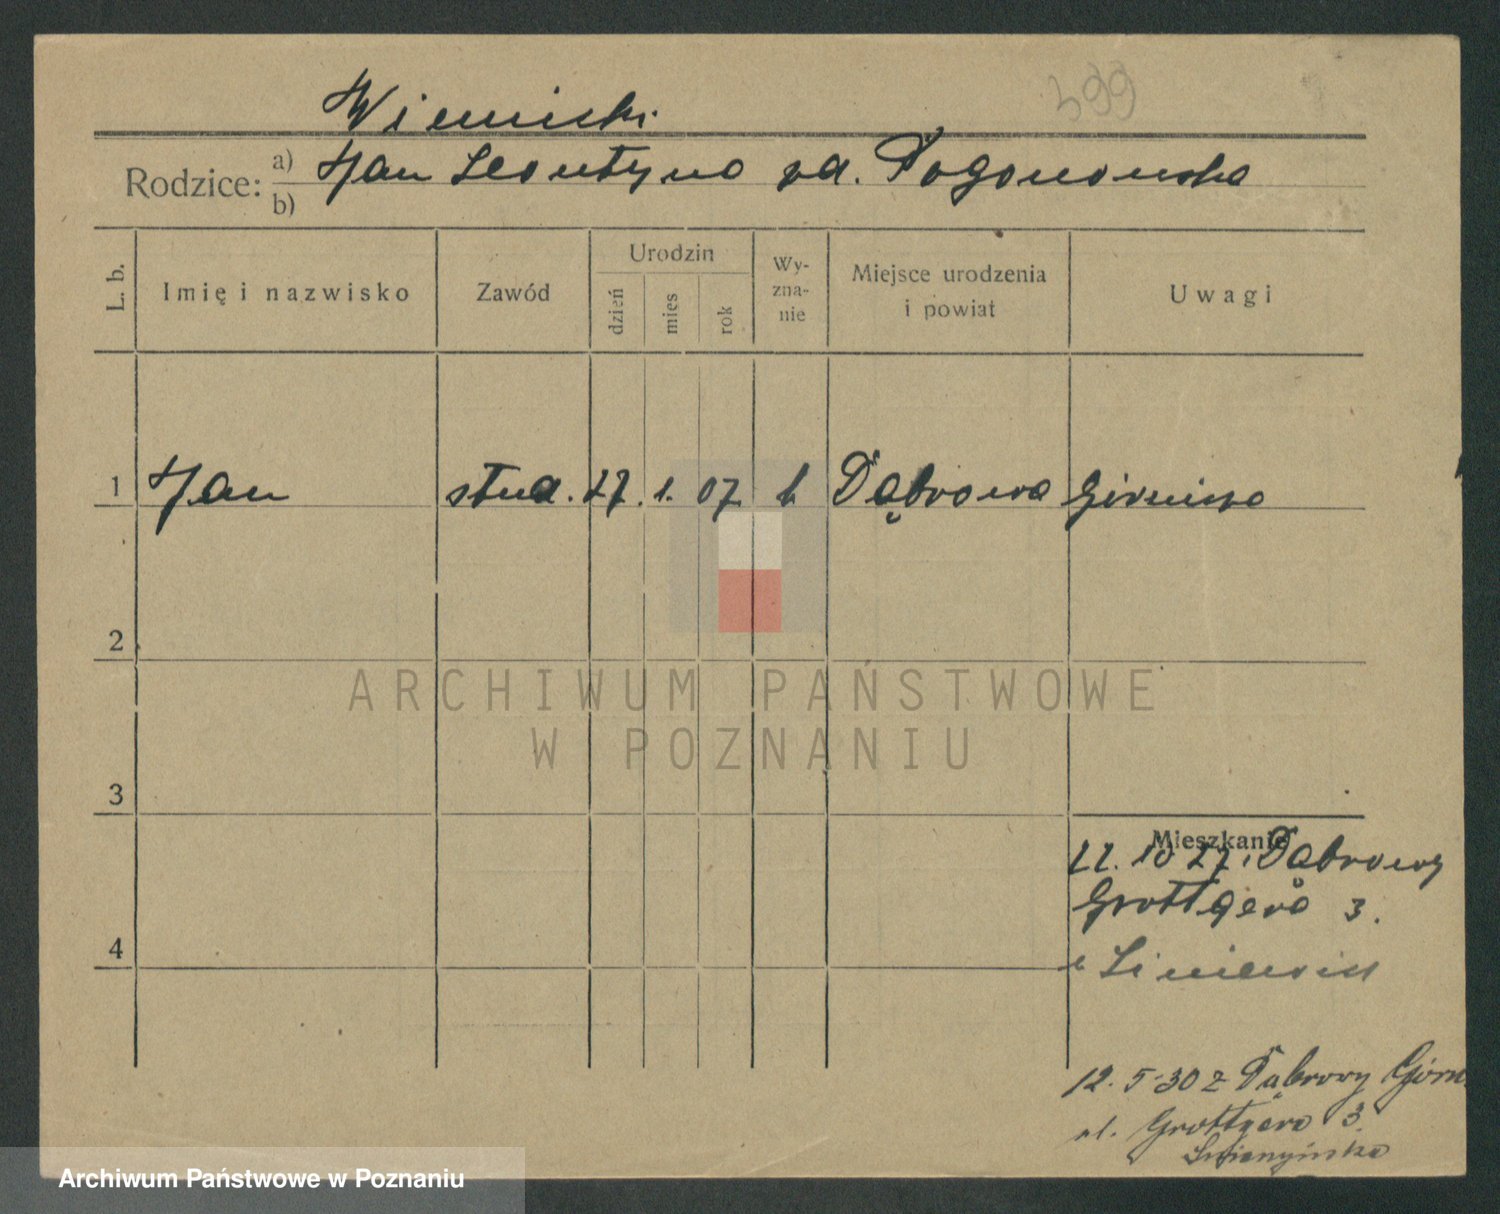 399
Wiemicki
Rodzice: a) Jan Leontyna zd. Pogonowska
b)
L. b.
Imię i nazwisko
Zawód
Urodzin
dzień
mies
rok
Wy-
zna-
nie
Miejsce urodzenia
i powiat
Uwagi
1 Jan stud. 27. 1. 07 k Dąbrowa Górnicza
2
3
4
Mieszkanie
22. 10 27. Dąbrowy
Grottgera 3.
12. 5. 30 z Dąbrowy Górn.
ul. Grottgera 3.
ARCHIWUM PAŃSTWOWE
W POZNANIU
Archiwum Państwowe w Poznaniu